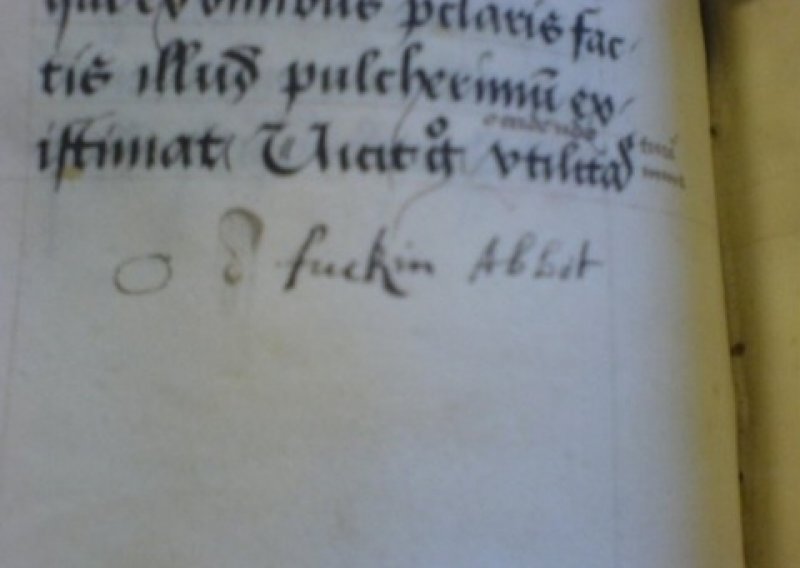 qui ex omnibus p̄claris fac
tis illud pulcherrimū ex
istimat Uicit vtilitas
O d fuckin Abbot